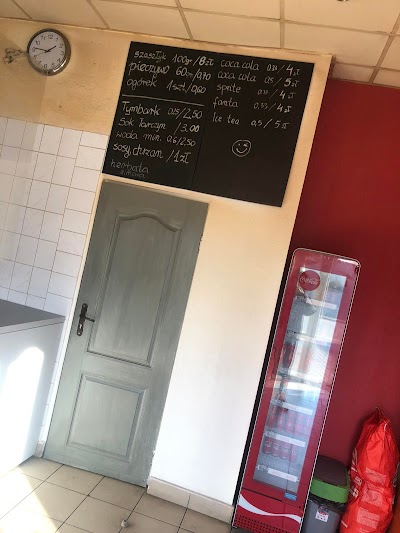 szaszłyk 100gr/8zł
pieczywo 60gr/0,70
ogórek 1szt/0,60
Tymbark 0,25/2,50
Sok tarczyn /3.00
woda min. 0,6/2,50
sosy, chrzan /1zł
herbata
coca cola /4zł
coca cola 0,5/5zł
sprite /4zł
fanta /4zł
Ice tea 0,5/5zł
Coca-Cola